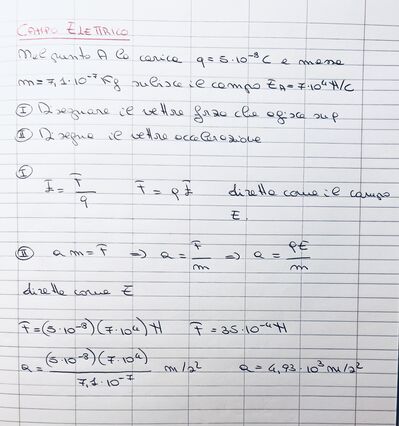 CAMPO ELETTRICO
Nel punto A la carica q = 5·10⁻⁸ C e massa
m = 7,1·10⁻⁷ Kg subisce il campo E̅_A = 7·10⁴ N/C
I Disegnare il vettore forza che agisce su q
II Disegna il vettore accelerazione
I
E̅ = F̅/q F̅ = qE̅ diretta come il campo
E.
II a m = F̅ ⇒ a = F̅/m ⇒ a = qE/m
diretta come E̅
F̅ = (5·10⁻⁸)(7·10⁴) N F̅ = 35·10⁻⁴ N
a = (5·10⁻⁸)(7·10⁴)/7,1·10⁻⁷ m/s² a = 4,93·10³ m/s²